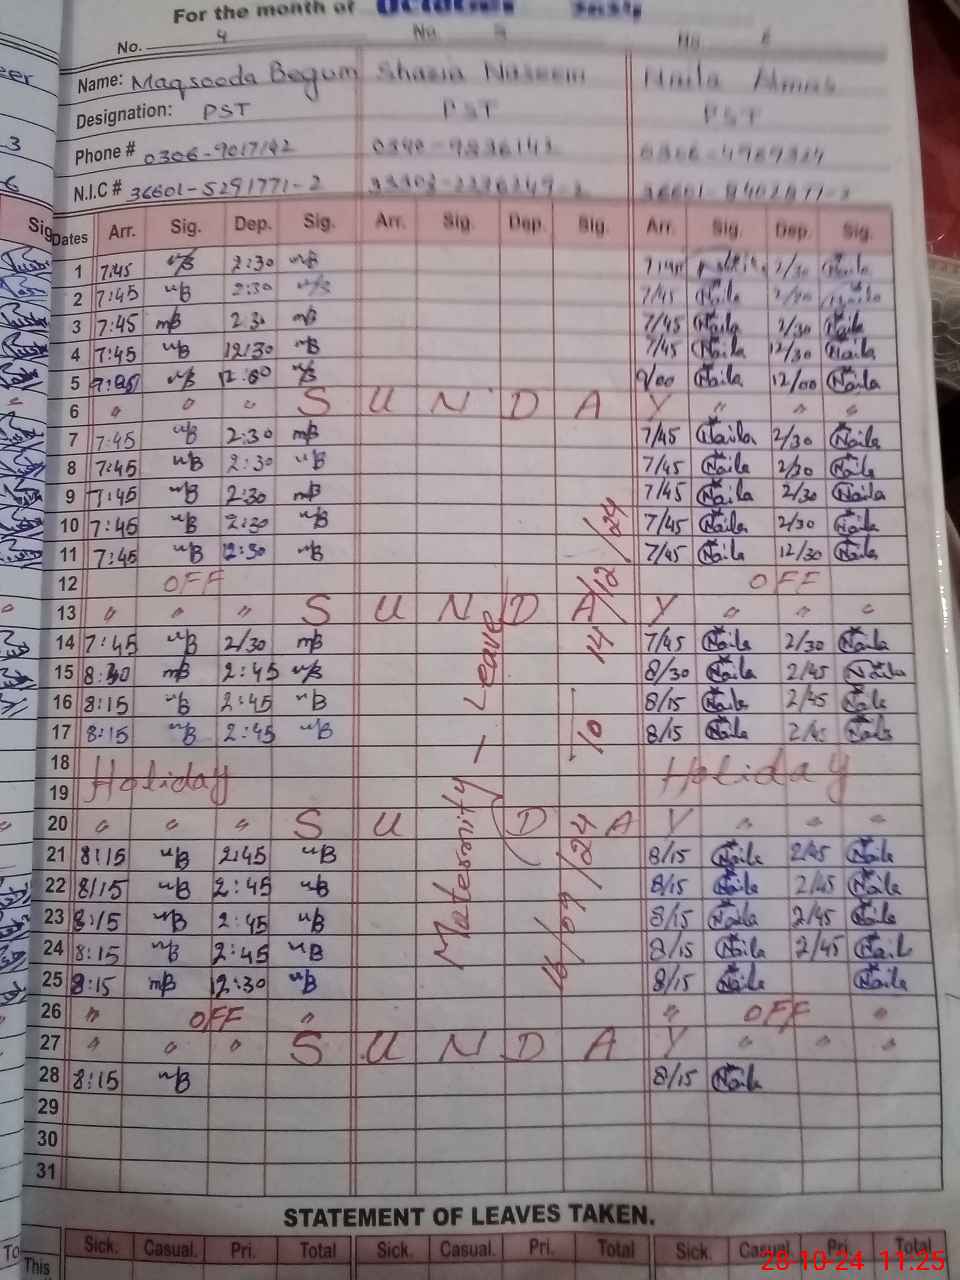 For the month of October
No. 4 No. 5 No. 6
Name: Maqsooda Begum Shazia Naseem Naila
Designation: PST PST PST
Phone # 0306-9017142
N.I.C # 36601-5291771-2
Dates Arr. Sig. Dep. Sig. Arr. Sig. Dep. Sig. Arr. Sig. Dep. Sig.
1 7:45 mB 2:30 mB 2/30 Naila
2 7:45 mB 2:30 mB 7/45 Naila Naila
3 7:45 mB 2:30 mB 7/45 Naila 2/30 Naila
4 7:45 mB 12:30 mB 7/45 Naila 12/30 Naila
5 mB 12:00 mB 9/00 Naila 12/00 Naila
6 " " " S U N D A Y " " "
7 7:45 mB 2:30 mB 7/45 Naila 2/30 Naila
8 7:45 mB 2:30 mB 7/45 Naila 2/30 Naila
9 7:45 mB 2:30 mB 7/45 Naila 2/30 Naila
10 7:45 mB 2:30 mB 7/45 Naila 2/30 Naila
11 7:45 mB 12:30 mB 7/45 Naila 12/30 Naila
12 OFF OFF
13 " " " S U N D A Y " " "
14 7:45 mB 2/30 mB 7/45 Naila 2/30 Naila
15 8:30 mB 2:45 mB 8/30 Naila 2/45 Naila
16 8:15 mB 2:45 mB 8/15 Naila 2/45 Naila
17 8:15 mB 2:45 mB 8/15 Naila 2/45 Naila
18
Holiday Holiday
19
20 " " " S U N D A Y " " "
21 8:15 mB 2:45 mB 8/15 Naila 2/45 Naila
22 8:15 mB 2:45 mB 8/15 Naila 2/45 Naila
23 8:15 mB 2:45 mB 8/15 Naila 2/45 Naila
24 8:15 mB 2:45 mB 8/15 Naila 2/45 Naila
25 8:15 mB 12:30 mB 8/15 Naila Naila
26 " OFF " " OFF "
27 " " " S U N D A Y " " "
28 8:15 mB 8/15 Naila
29
30
31
Maternity — Leave
16/09/24 To 14/12/24
STATEMENT OF LEAVES TAKEN.
Sick. Casual. Pri. Total Sick. Casual. Pri. Total Sick. Casual Pri. Total
This
28-10-24 11:25